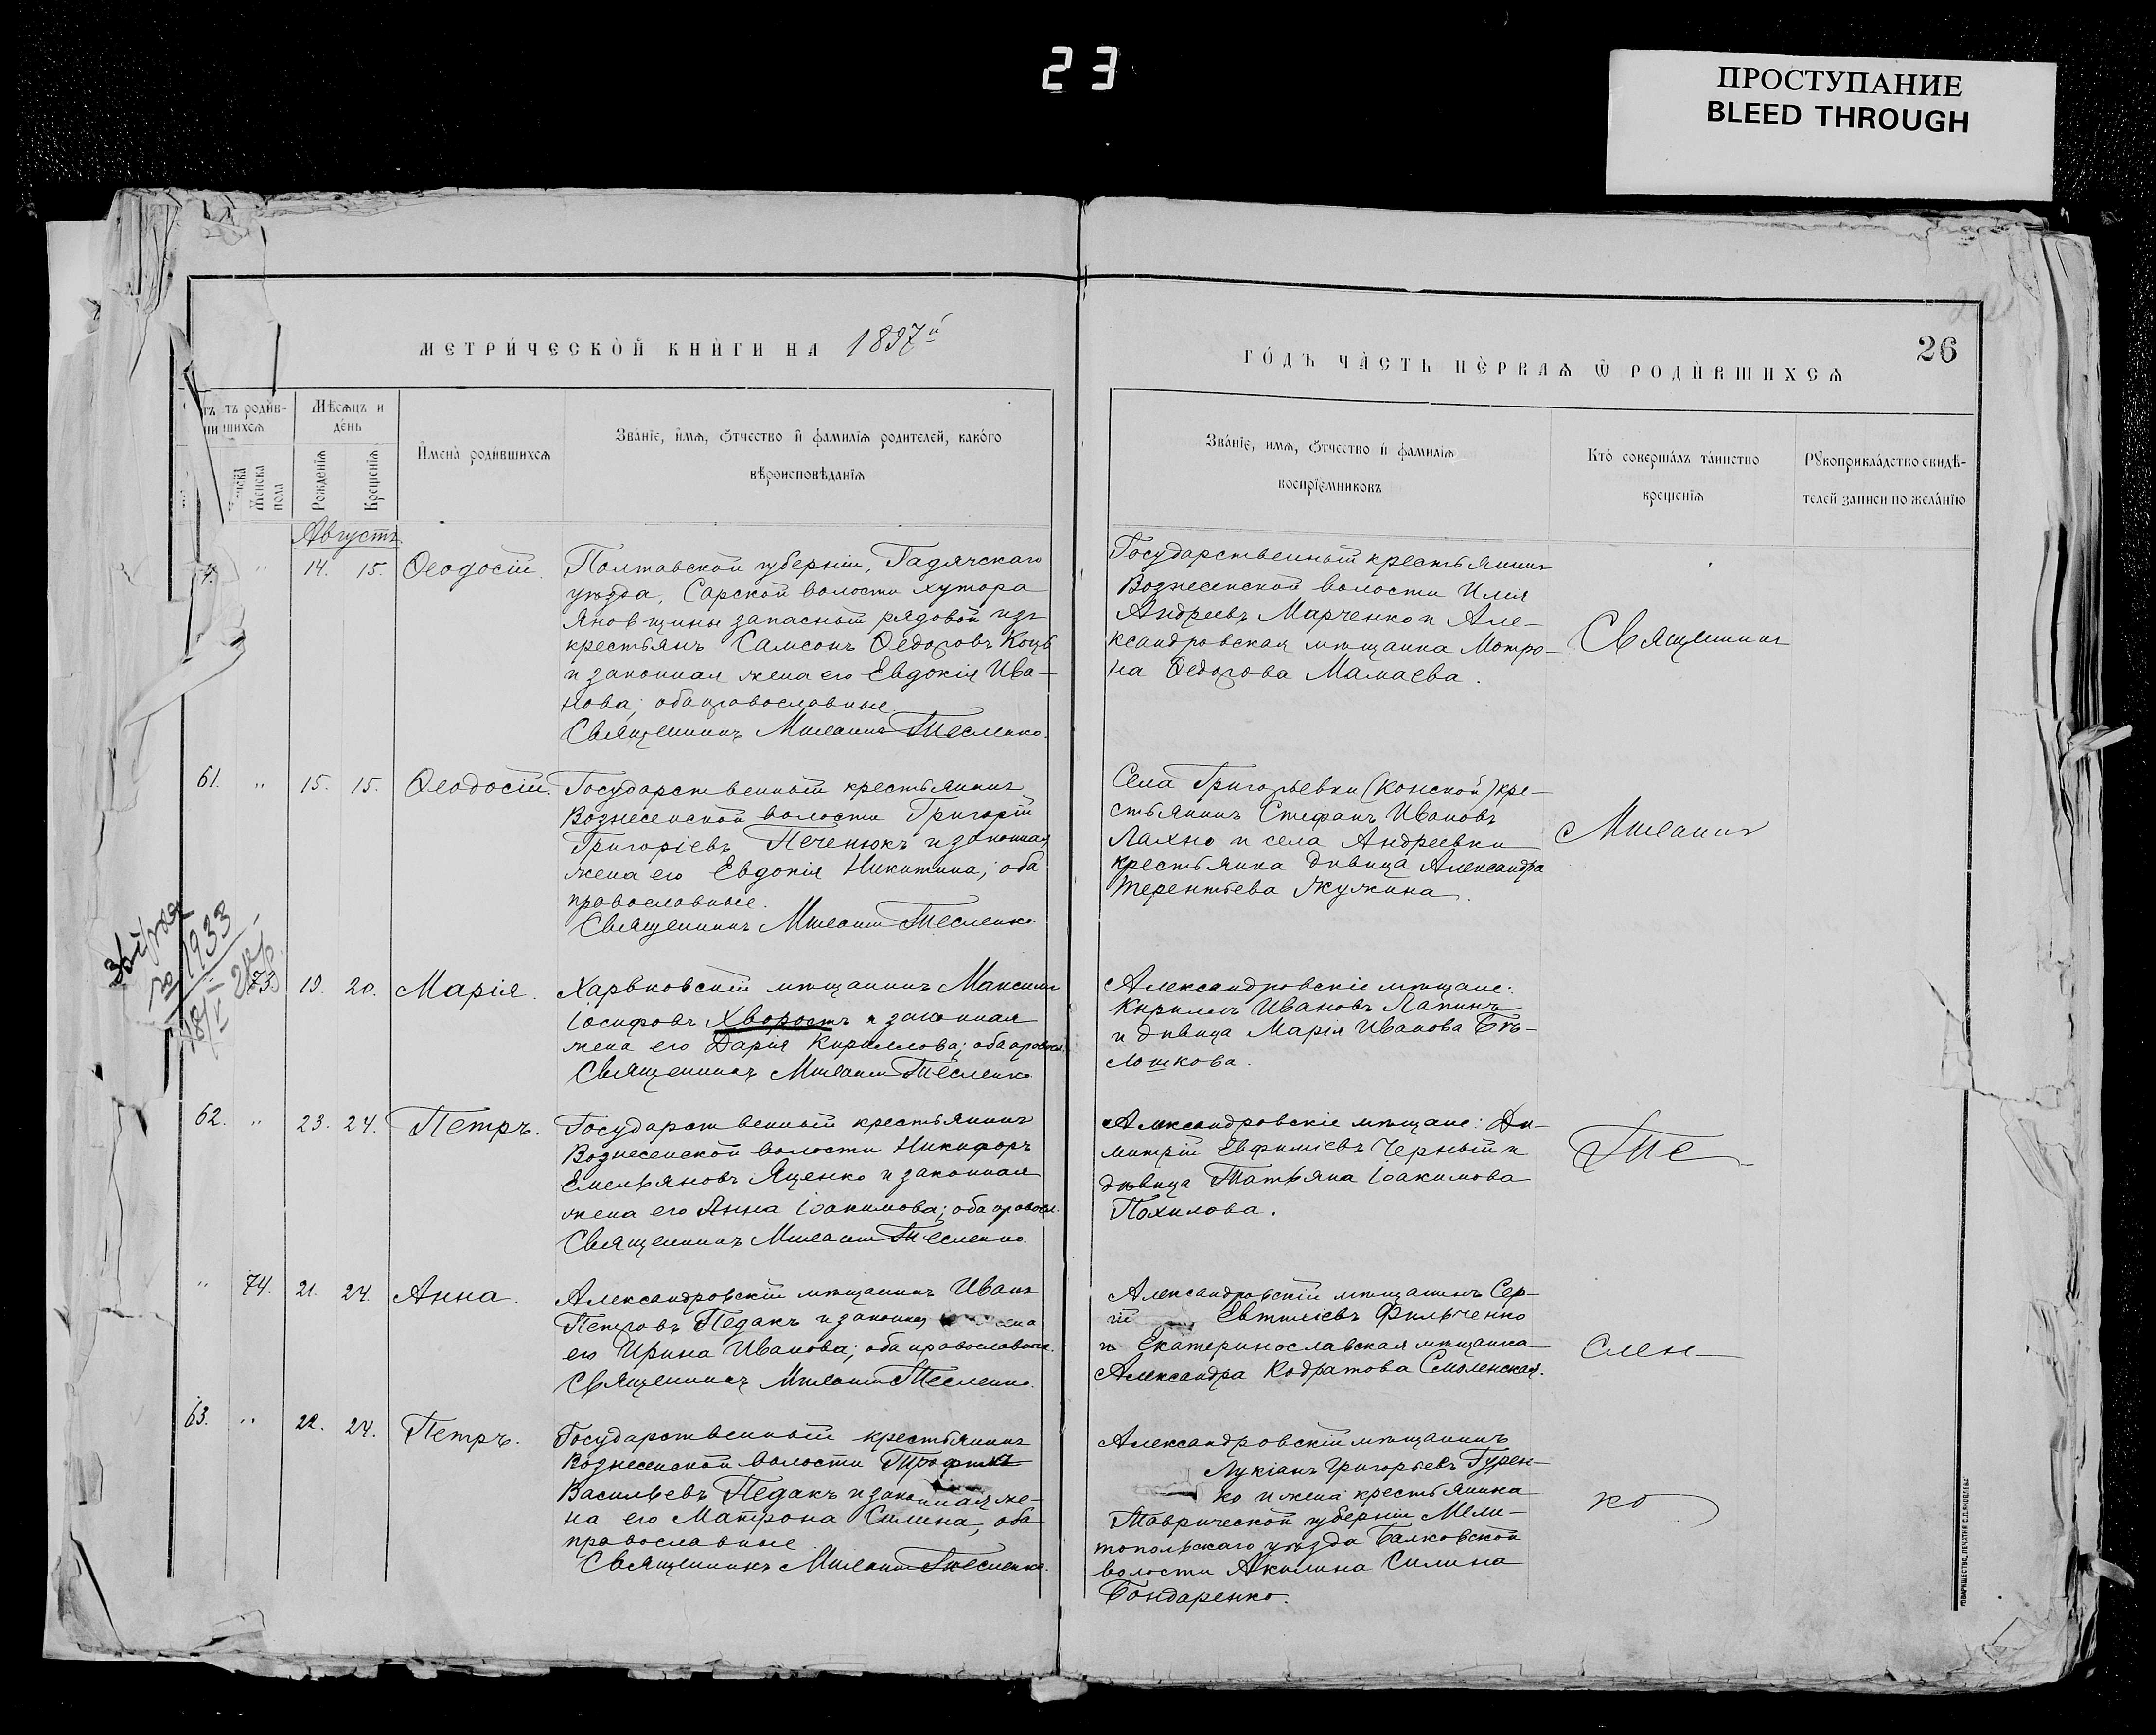 23
ПРОСТУПАНИЕ
BLEED THROUGH
МЕТРИ́ЧЕСКОЙ КНИ́ГИ НА 1897й
ГО́ДЪ ЧА́СТЬ ПЕ́РВАЯ Ѿ РОДИ́ВШИХСЯ
26
тъ родив-
шихся
Мѣсяцъ и
день
Женска
пола
Рожденія
Крещенія
Имена родившихся
Званіе, имя, отчество и фамилія родителей, какого
вѣроисповѣданія
Званіе, имя, отчество и фамилія
воспріемниковъ
Кто совершалъ таинство
крещенія
Рукоприкладство свидѣ-
телей записи по желанію
Августъ
" 14. 15. Ѳеодосій.
Полтавской губерніи, Гадячскаго
уѣзда, Сарской волости хутора
Яновщины запасный рядовой изъ
крестьянъ Самсонъ Ѳедоровъ Коцъ
и законная жена его Евдокія Ива-
нова; оба православные.
Священникъ Миланій Тесленко.
Государственный крестьянинъ
Вознесенской волости Илія
Андреевъ Марченко и Але-
ксандровская мѣщанка Мотро-
на Ѳедорова Мамаева.
Священникъ
61. " 15. 15. Ѳеодосій.
Государственный крестьянинъ
Вознесенской волости Григорій
Григоріевъ Печенюкъ и законная
жена его Евдокія Никитина; оба
православные.
Священникъ Миланій Тесленко.
Села Григорьевки (Конской) кре-
стьянинъ Стефанъ Ивановъ
Лахно и села Андреевки
крестьянка дѣвица Александра
Терентьева Жужина.
1933
73. 19. 20. Марія.
Харьковскій мѣщанинъ Максимъ
Іосифовъ Хворостъ и законная
жена его Дарія Кириллова; оба правосл.
Священникъ Миланій Тесленко
Александровскіе мѣщане:
Кириллъ Ивановъ Лапинъ
и дѣвица Марія Иванова Бѣ-
лошкова.
62. " 23. 24. Петръ.
Государственный крестьянинъ
Вознесенской волости Никифоръ
Емельяновъ Яценко и законная
жена его Анна Іоакимова; оба правосл.
Священникъ Миланій Тесленко.
Александровскіе мѣщане: Ди-
митрій Евфиміевъ Черный и
дѣвица Татьяна Іоакимова
Похилова.
Те
" 74. 21. 24. Анна.
Александровскій мѣщанинъ Иванъ
Петровъ Педакъ и законная жена
его Ирина Иванова; оба православные.
Священникъ Миланій Тесленко.
Александровскій мѣщанинъ Сер-
гій Евтиміевъ Фильченко
и Екатеринославская мѣщанка
Александра Кодратова Смоленская.
слен-
63. " 22. 24. Петръ.
Государственный крестьянинъ
Вознесенской волости Трофимъ
Васильевъ Педакъ и законная же-
на его Матрона Силина, оба
православные
Священникъ Миланій Тесленко.
Александровскій мѣщанинъ
Лукіанъ Григорьевъ Гурен-
ко и жена крестьянина
Таврической губерніи Мели-
топольскаго уѣзда Балковской
волости Акилина Силина
Бондаренко.
ко